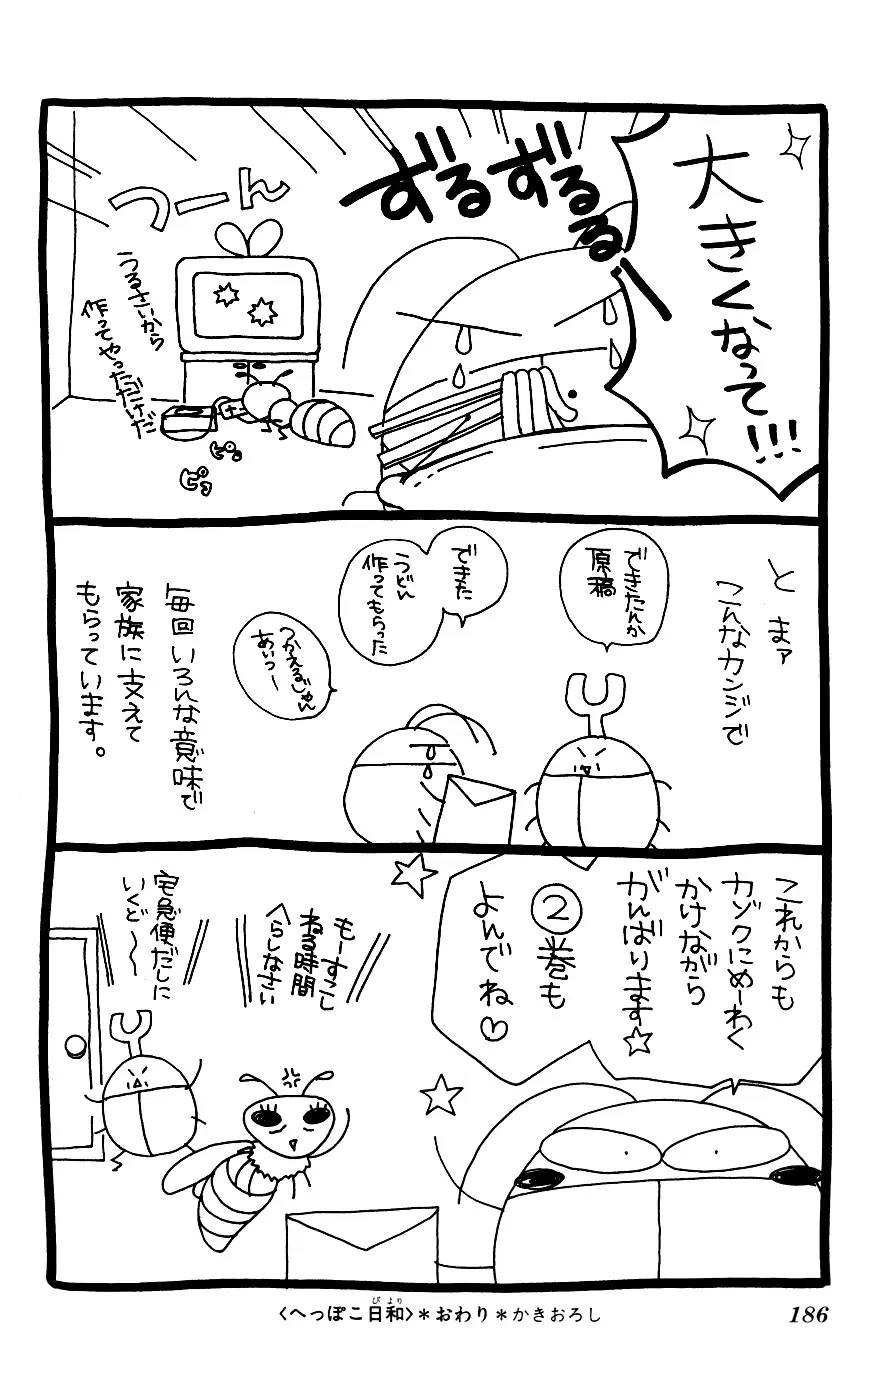 大きくなって!!!
ずるずるるー
つーん
うるさいから
作ってやっただけだ
ピコ
ピコ
とまァ
こんなカンジで
できたんか
原稿
できた
うどん
作ってもらった
つかえるじゃん
あいつー
毎回いろんな意味で
家族に支えて
もらっています。
これからも
カゾクにめーわく
かけながら
がんばります☆
②巻も
よんでね♡
もーすこし
ねる時間
へらしなさい
宅急便だしに
いくど～～
〈へっぽこ日和〉＊おわり＊かきおろし
びより
186